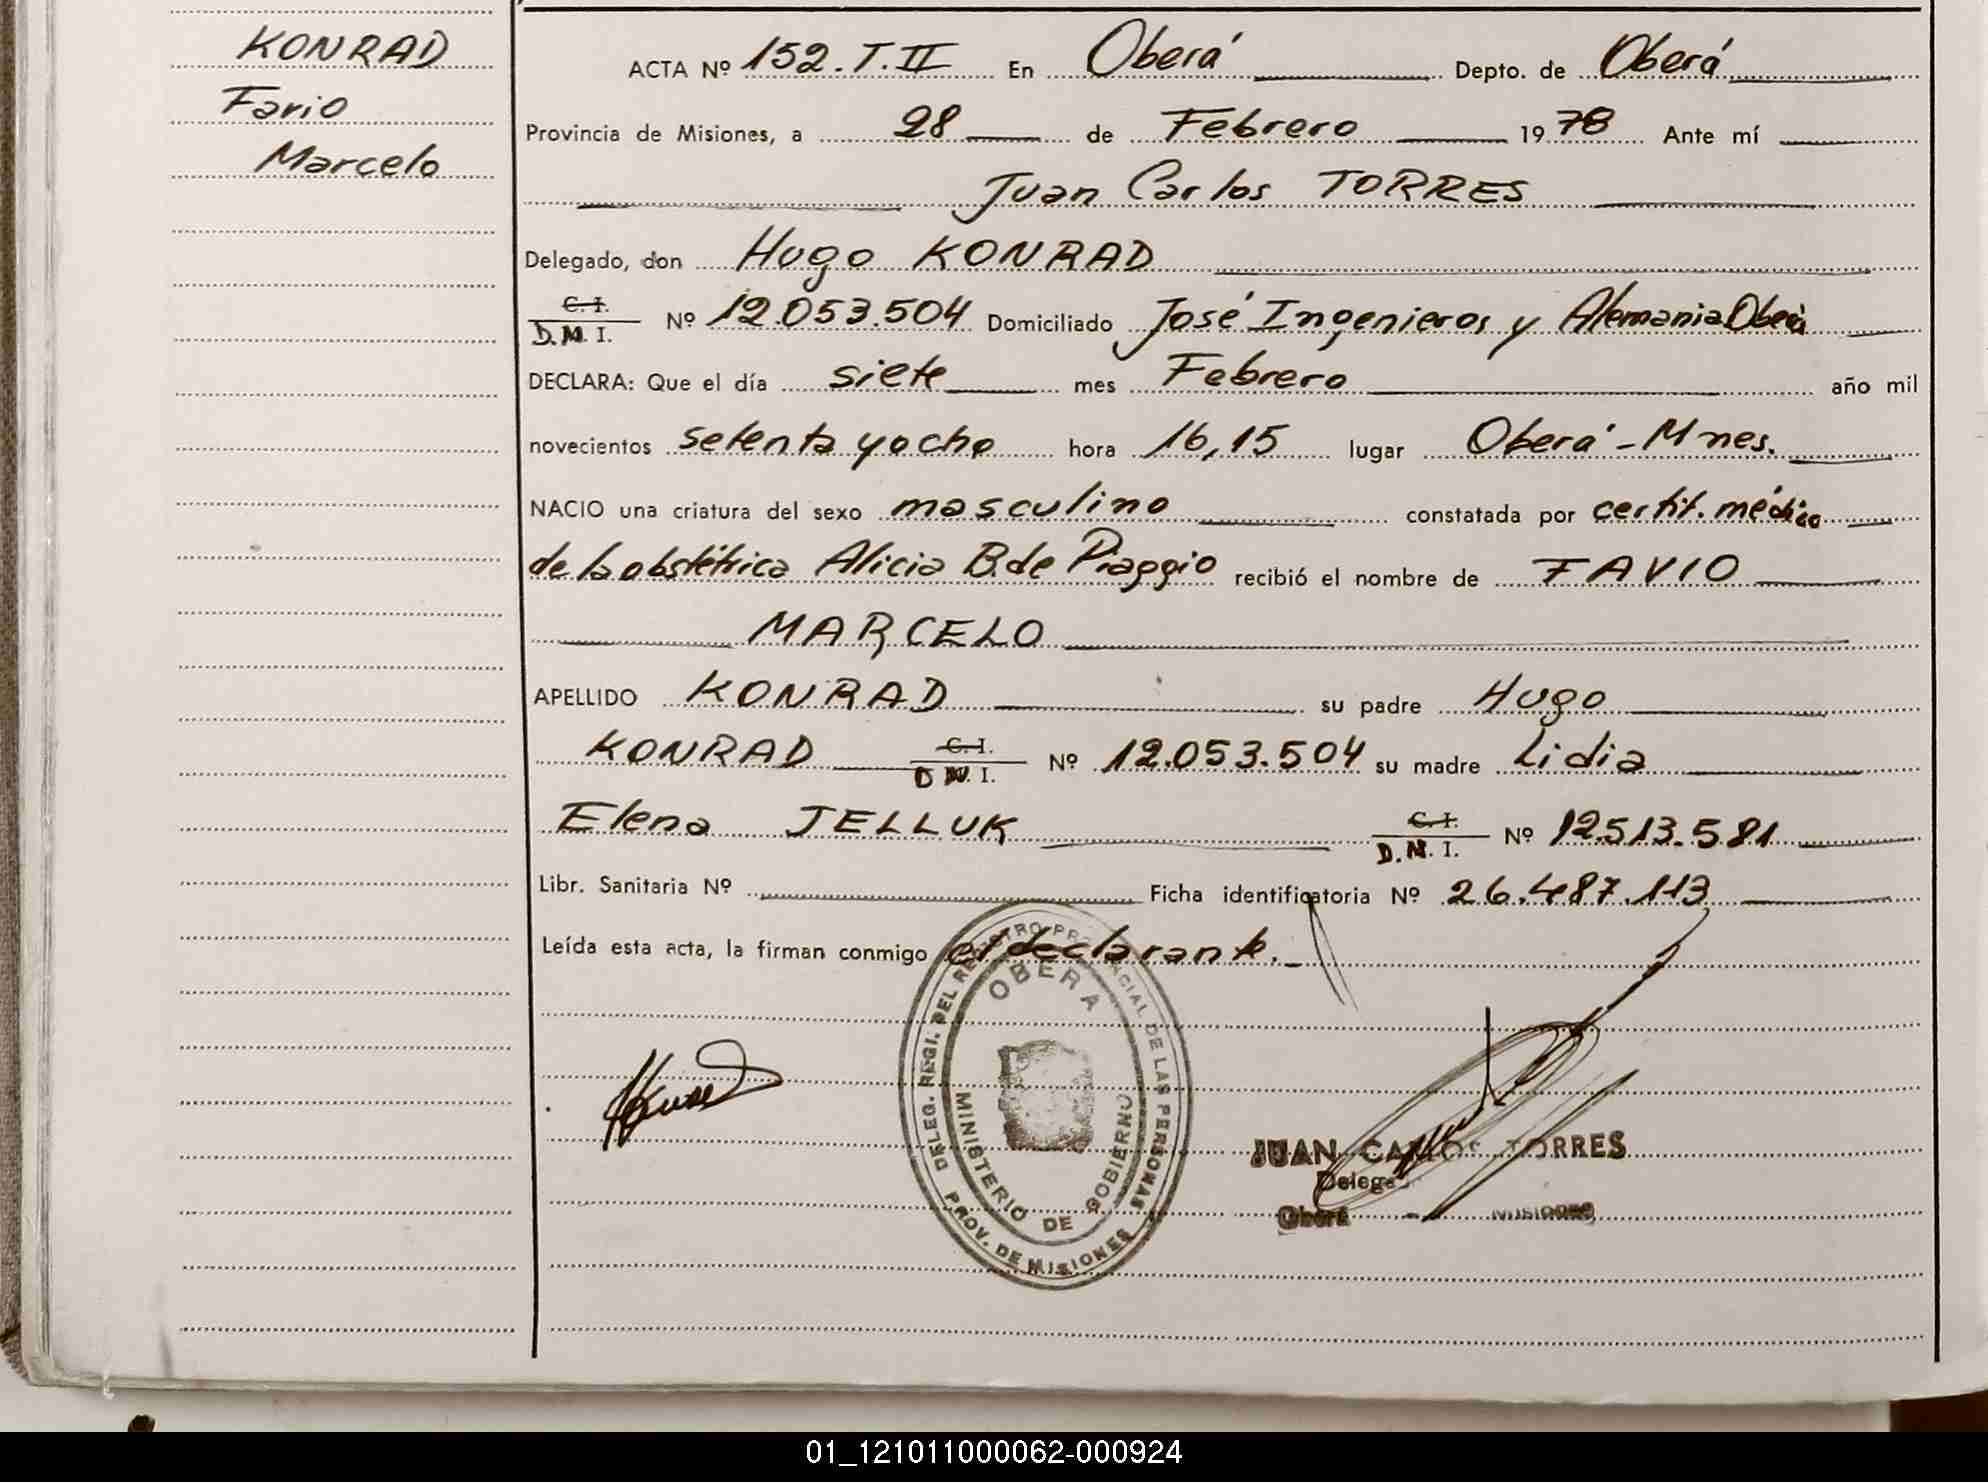 KONRAD
Favio
Marcelo
ACTA Nº 152.T.II En Oberá Depto. de Oberá
Provincia de Misiones, a 28 de Febrero 1978 Ante mí
Juan Carlos TORRES
Delegado, don Hugo KONRAD
C. I.
D.N.I. Nº 12.053.504 Domiciliado José Ingenieros y Alemania Oberá
DECLARA: Que el día siete mes Febrero año mil
novecientos setenta y ocho hora 16,15 lugar Oberá - Mnes.
NACIO una criatura del sexo masculino constatada por certif. médico
de la obstétrica Alicia B. de Piaggio recibió el nombre de FAVIO
MARCELO
APELLIDO KONRAD su padre Hugo
KONRAD C. I. D.N.I. Nº 12.053.504 su madre Lidia
Elena JELLUK C. I. D.N.I. Nº 12.513.581
Libr. Sanitaria Nº Ficha identificatoria Nº 26.487.113
Leída esta acta, la firman conmigo el declarante.
DELEG. REGI. DEL REGISTRO PROVINCIAL DE LAS PERSONAS
OBERA
MINISTERIO DE GOBIERNO
PROV. DE MISIONES
JUAN CARLOS TORRES
Delegado
Oberá - Misiones
01_121011000062-000924